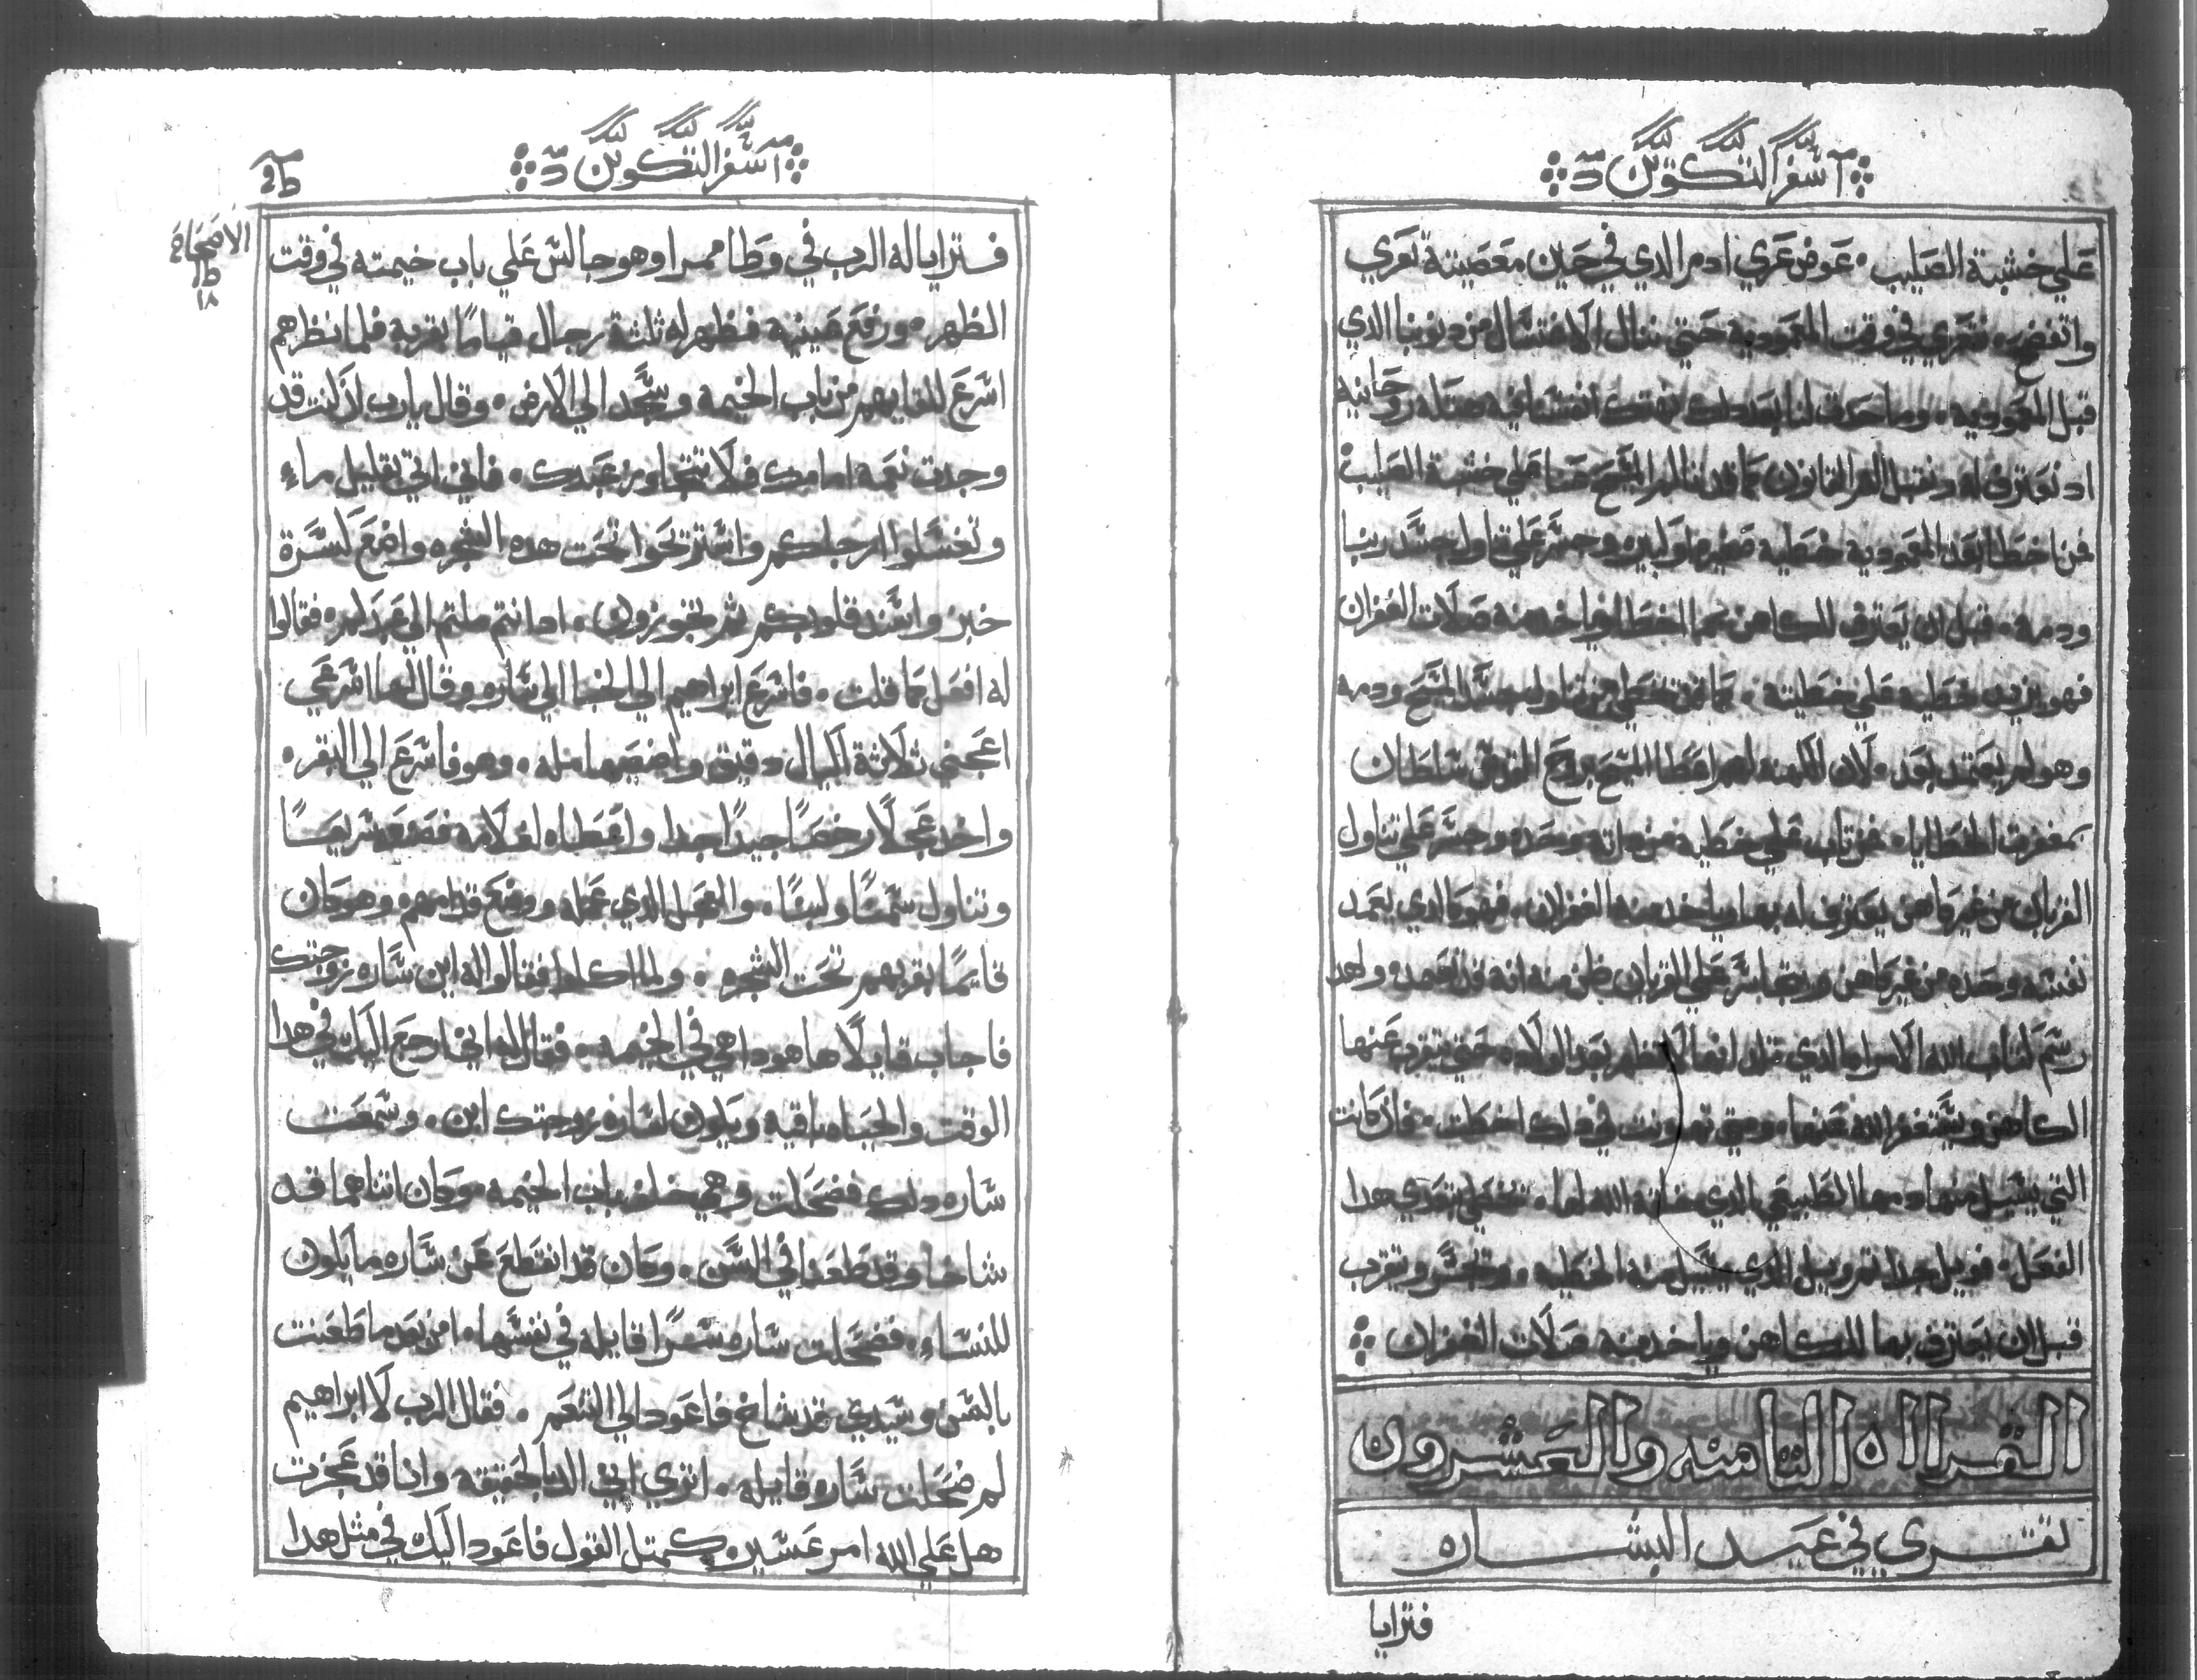 سفر التكوين
علي خشبة الصليب عوض عري ادم الدي في حين معصيته تعري
واتفضح نتعري في وقت المعموديه حتي ننال الاغتسال من دنوبنا الدي
قبل المعموديه وما حدث لنا بعد دلك نهتك انفسنا فيه هتكه روحانيه
اد نعترف له ونقبل الم القانون كما قبل الم المسيح عنا علي خشبة الصليب
فمن اخطا بعد المعموديه خطيه صغيره او كبيره وجسر علي تناول جسد ربنا
ودمه قبل ان يعترف للكاهن بما اخطا وياخد منه صلات الغفران
فهو يزيد خطيه علي خطيته كما من تخطي من تناول جسد المسيح ودمه
وهو لم يعتمد بعد لان الكهنه لهم اعطا المسيح بروح القدس سلطان
بمغفرت الخطايا فمن تاب علي خطيه من داته وحده وجسر علي تناول
القربان من غير كاهن يعترف له بها وياخد منه الغفران فهو كالدي يعمد
نفسه وحده من غير كاهن ويتجاسر علي القربان ظن منه انه قد تعمد ولهدا
رسم كتاب الله الامراه الدي تلد انها لا تطهر بعد الولاده حتي يقرب عنها
الكاهن ويستغفر الله عنها ومتي تهاونت في دلك اخطت فان كانت
التي يسيل منها دمها الطبيعي الدي خلقه الله لها تخطي بتعدي هدا
الفعل فويل جدا تم ويل الدي يسيل منه الخطيه ويجسر ويتقرب
قبل ان يعترف بها للكاهن وياخد منه صلات الغفران
القراه التامنه والعشرون
تقري في عيد البشاره
فترايا
سفر التكوين
الاصحاح
١٨
فترايا له الرب في وطا ممرا وهو جالس علي باب خيمته في وقت
الظهر ورفع عينيه فظهر له تلتة رجال قياما بقربه فلما نظرهم
اسرع للقايهم من باب الخيمه وسجد الي الارض وقال يارب ان كنت قد
وجدت نعمه امامك فلا تتجاوز عبدك فاني اتي بقليل ماء
وتغسلوا ارجلكم واستريحوا تحت هده الشجره واضع كسرة
خبز واسند قلوبكم تم تجوزون ادا انتم ملتم الي عبدكم فقالوا
له افعل كما قلت فاسرع ابراهيم الي الخبا الي ساره وقال لها اسرعي
اعجني تلاتة اكيال دقيق واصنعيها مله وهو فاسرع الي البقر
واخد عجلا رخصا جيدا جدا واعطاه لغلامه فصنعه سريعا
وتناول سمنا ولبنا والعجل الدي عمله ووضع قدامهم وهو كان
قايما بقربهم تحت الشجره ولما اكلوا فقالوا له اين ساره زوجتك
فاجاب قايلا ها هودا هي في الخيمه فقال له اني ارجع اليك في هدا
الوقت والحياه باقيه ويكون لساره زوجتك ابن وسمعت
ساره دلك فضحكت وهي خلف باب الخيمه وكان اتناهما قد
شاخا وقد طعنا في السن وكان قد انقطع عن ساره ما يكون
للنساء فضحكت ساره سرا قايله في نفسها امن بعد ما طعنت
بالسن وسيدي قد شاخ فاعود الي التنعم فقال الرب لابراهيم
لم ضحكت ساره قايله اتري اني الد بالحقيقه وانا قد عجزت
هل علي الله امر عسير كمتل القول فاعود اليك في متل هدا